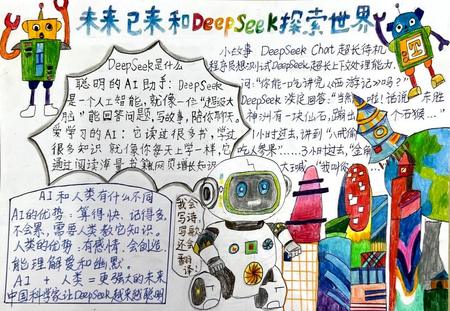 未来已来和DeepSeek探索世界
DeepSeek是什么
聪明的AI助手：DeepSeek
是一个人工智能，就像一位"超级大
脑"能回答问题，写故事，陪你聊天。
爱学习的AI：它读过很多书，学过
很多知识 就像你每天上学一样，它
通过阅读海量书籍网页增长知识
小故事 DeepSeek Chat 超长待机
程序员想测试DeepSeek超长上下文处理能力，
问："你能一口气讲完《西游记》吗？"
DeepSeek 淡定回答："当然
啦！话说 东胜
神洲有一块仙石，蹦出
个石猴…"
1小时过去，讲到"八戒偷
吃人参果"……3小时过去，"全
大喊："我叫你
AI和人类有什么不同
AI的优势：算得快，记得多，
不会累，需要人类教它知识。
人类的优势：有感情，会创造
能理解爱和幽默。
AI + 人类 = 更强大的未来
中国科学家让DeepSeek越来越聪明
我会
写诗，
写歌
还会
翻译！